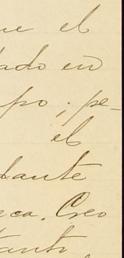 ue el
tado en
po; pe-
el
dante
eca. Creo
tanti,